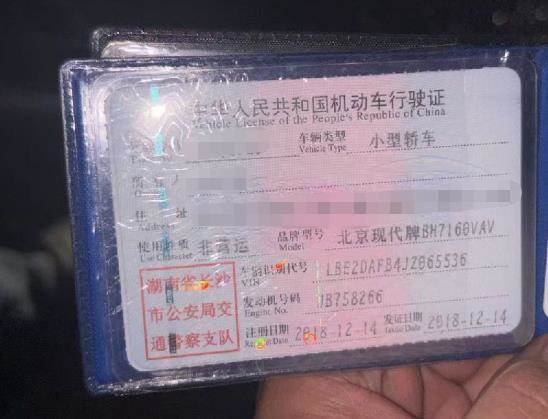 中华人民共和国机动车行驶证
Vehicle License of the People's Republic of China
车辆类型 小型轿车
Vehicle Type
住 址
Address
使用性质 非营运 品牌型号 北京现代牌BH7160VAV
Use Character Model
车辆识别代号 LBE2DAFB4JZ865536
VIN
湖南省长沙
市公安局交
通警察支队
发动机号码 JB758266
Engine No.
注册日期 2018-12-14 发证日期 2018-12-14
Register Date Issue Date